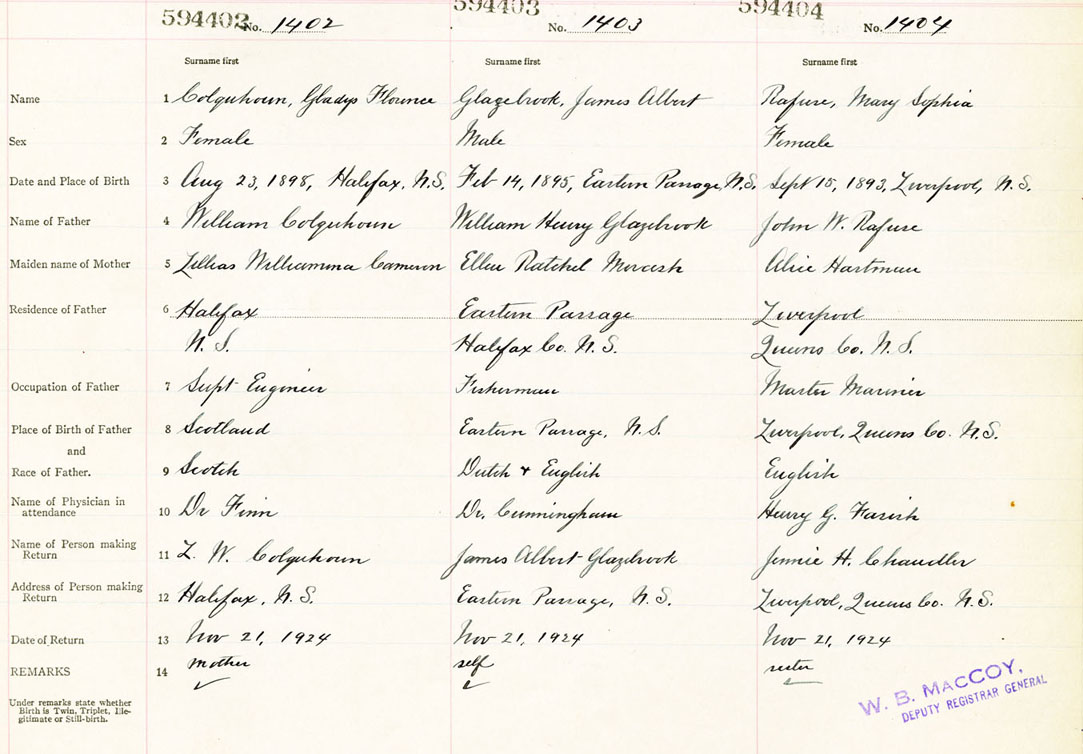 594402 594403 594404
No. 1402 No. 1403 No. 1404
Surname first Surname first Surname first
Name 1 Colquhoun, Gladys Florence Glazebrook, James Albert Rafuse, Mary Sophia
Sex 2 Female Male Female
Date and Place of Birth 3 Aug 23, 1898, Halifax, N.S. Feb 14, 1895, Eastern Passage, N.S. Sept 15, 1893, Liverpool, N.S.
Name of Father 4 William Colquhoun William Henry Glazebrook John W. Rafuse
Maiden name of Mother 5 Lillias Williamina Cameron Ellen Ratchel Alice Hartman
Residence of Father 6 Halifax Eastern Passage Liverpool
N. S. Halifax Co. N. S. Queens Co. N. S.
Occupation of Father 7 Supt Engineer Fisherman Master Mariner
Place of Birth of Father 8 Scotland Eastern Passage, N.S. Liverpool, Queens Co. N.S.
and
Race of Father. 9 Scotch Dutch & English English
Name of Physician in
attendance 10 Dr Finn Dr. Cunningham Henry G. Farish
Name of Person making
Return 11 L. W. Colquhoun James Albert Glazebrook Jennie H. Chandler
Address of Person making
Return 12 Halifax, N.S. Eastern Passage, N.S. Liverpool, Queens Co. N.S.
Date of Return 13 Nov 21, 1924 Nov 21, 1924 Nov 21, 1924
REMARKS 14 mother self sister
Under remarks state whether
Birth is Twin, Triplet, Ille-
gitimate or Still-birth.
W. B. MACCOY,
DEPUTY REGISTRAR GENERAL